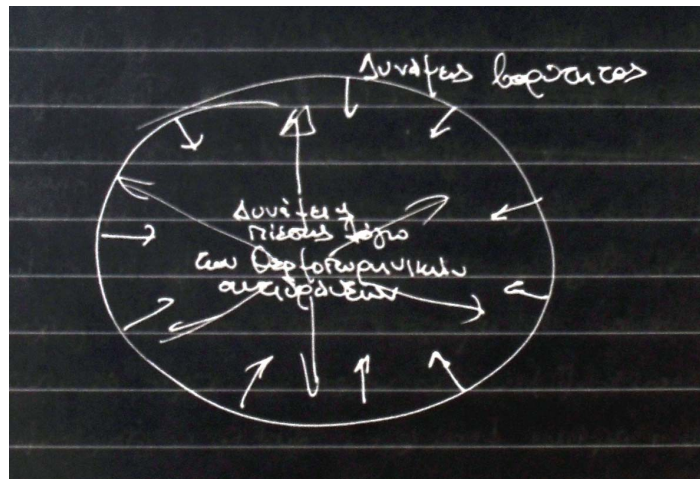 Δυνάμεις βαρύτητος
Δυνάμεις
πίεσης λόγω
των θερμοπυρηνικών
αντιδράσεων